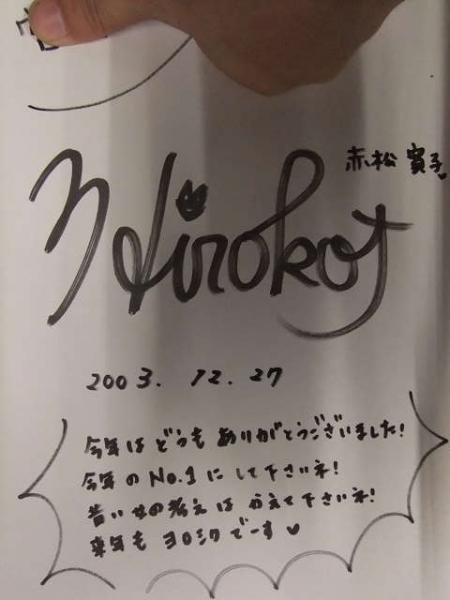 赤松 寛子
Hiroko
2003. 12. 27
今年は どうも ありがとうございました!
今年の No.1 にして下さいネ!
昔い女の考えは かえて下さいネ!
来年も ヨロシク でーす♥